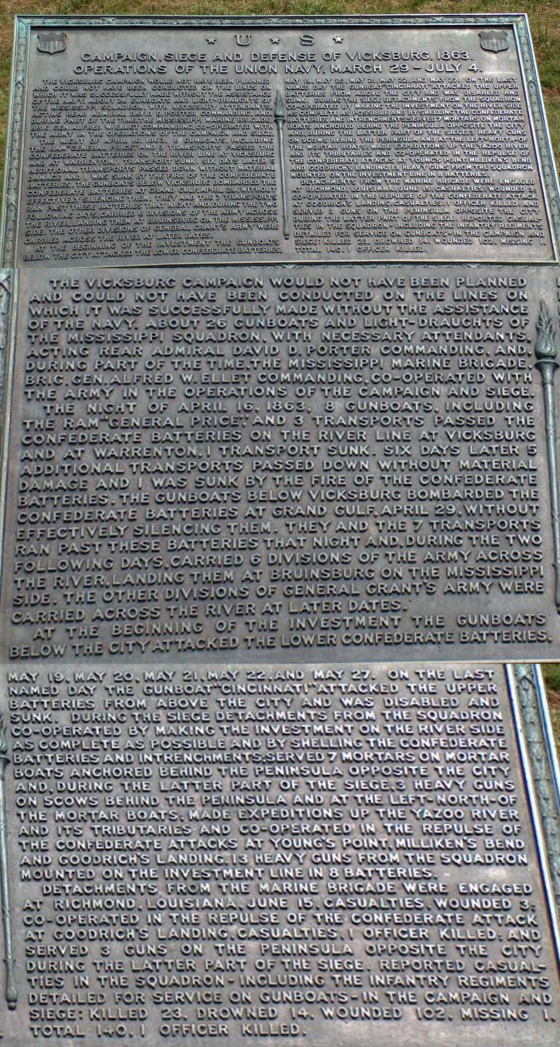 ★ U S ★
CAMPAIGN, SIEGE AND DEFENSE OF VICKSBURG, 1863.
OPERATIONS OF THE UNION NAVY, MARCH 29 - JULY 4.
THE VICKSBURG CAMPAIGN WOULD NOT HAVE BEEN PLANNED
AND COULD NOT HAVE BEEN CONDUCTED ON THE LINES ON
WHICH IT WAS SUCCESSFULLY MADE WITHOUT THE ASSISTANCE
OF THE NAVY. ABOUT 26 GUNBOATS AND LIGHT-DRAUGHTS OF
THE MISSISSIPPI SQUADRON, WITH NECESSARY ATTENDANTS,
ACTING REAR ADMIRAL DAVID D. PORTER COMMANDING, AND,
DURING PART OF THE TIME, THE MISSISSIPPI MARINE BRIGADE,
BRIG. GEN. ALFRED W. ELLET COMMANDING, CO-OPERATED WITH
THE ARMY IN THE OPERATIONS OF THE CAMPAIGN AND SIEGE.
THE NIGHT OF APRIL 16, 1863, 8 GUNBOATS, INCLUDING
THE RAM "GENERAL PRICE," AND 3 TRANSPORTS PASSED THE
CONFEDERATE BATTERIES ON THE RIVER LINE AT VICKSBURG
AND AT WARRENTON, 1 TRANSPORT SUNK. SIX DAYS LATER 5
ADDITIONAL TRANSPORTS PASSED DOWN WITHOUT MATERIAL
DAMAGE AND 1 WAS SUNK BY THE FIRE OF THE CONFEDERATE
BATTERIES. THE GUNBOATS BELOW VICKSBURG BOMBARDED THE
CONFEDERATE BATTERIES AT GRAND GULF, APRIL 29, WITHOUT
EFFECTIVELY SILENCING THEM. THEY AND THE 7 TRANSPORTS
RAN PAST THESE BATTERIES THAT NIGHT AND, DURING THE TWO
FOLLOWING DAYS, CARRIED 6 DIVISIONS OF THE ARMY ACROSS
THE RIVER, LANDING THEM AT BRUINSBURG ON THE MISSISSIPPI
SIDE. THE OTHER DIVISIONS OF GENERAL GRANT'S ARMY WERE
CARRIED ACROSS THE RIVER AT LATER DATES.
AT THE BEGINNING OF THE INVESTMENT THE GUNBOATS
BELOW THE CITY ATTACKED THE LOWER CONFEDERATE BATTERIES,
MAY 19, MAY 20, MAY 21, MAY 22, AND MAY 27. ON THE LAST
NAMED DAY THE GUNBOAT "CINCINNATI" ATTACKED THE UPPER
BATTERIES FROM ABOVE THE CITY AND WAS DISABLED AND
SUNK. DURING THE SIEGE DETACHMENTS FROM THE SQUADRON
CO-OPERATED BY MAKING THE INVESTMENT ON THE RIVER SIDE
AS COMPLETE AS POSSIBLE AND BY SHELLING THE CONFEDERATE
BATTERIES AND INTRENCHMENTS, SERVED 7 MORTARS ON MORTAR
BOATS ANCHORED BEHIND THE PENINSULA OPPOSITE THE CITY
AND, DURING THE LATTER PART OF THE SIEGE, 3 HEAVY GUNS
ON SCOWS BEHIND THE PENINSULA AND AT THE LEFT-NORTH-OF
THE MORTAR BOATS, MADE EXPEDITIONS UP THE YAZOO RIVER
AND ITS TRIBUTARIES AND CO-OPERATED IN THE REPULSE OF
THE CONFEDERATE ATTACKS AT YOUNG'S POINT, MILLIKEN'S BEND
AND GOODRICH'S LANDING. 13 HEAVY GUNS FROM THE SQUADRON
MOUNTED ON THE INVESTMENT LINE IN 8 BATTERIES.
DETACHMENTS FROM THE MARINE BRIGADE WERE ENGAGED
AT RICHMOND, LOUISIANA, JUNE 15, CASUALTIES, WOUNDED 3,
CO-OPERATED IN THE REPULSE OF THE CONFEDERATE ATTACK
AT GOODRICH'S LANDING, CASUALTIES, 1 OFFICER KILLED, AND
SERVED 3 GUNS ON THE PENINSULA OPPOSITE THE CITY
DURING THE LATTER PART OF THE SIEGE. REPORTED CASUAL-
TIES IN THE SQUADRON-INCLUDING THE INFANTRY REGIMENTS
DETAILED FOR SERVICE ON GUNBOATS-IN THE CAMPAIGN AND
SIEGE: KILLED 23, DROWNED 14, WOUNDED 102, MISSING 1,
TOTAL 140, 1 OFFICER KILLED.